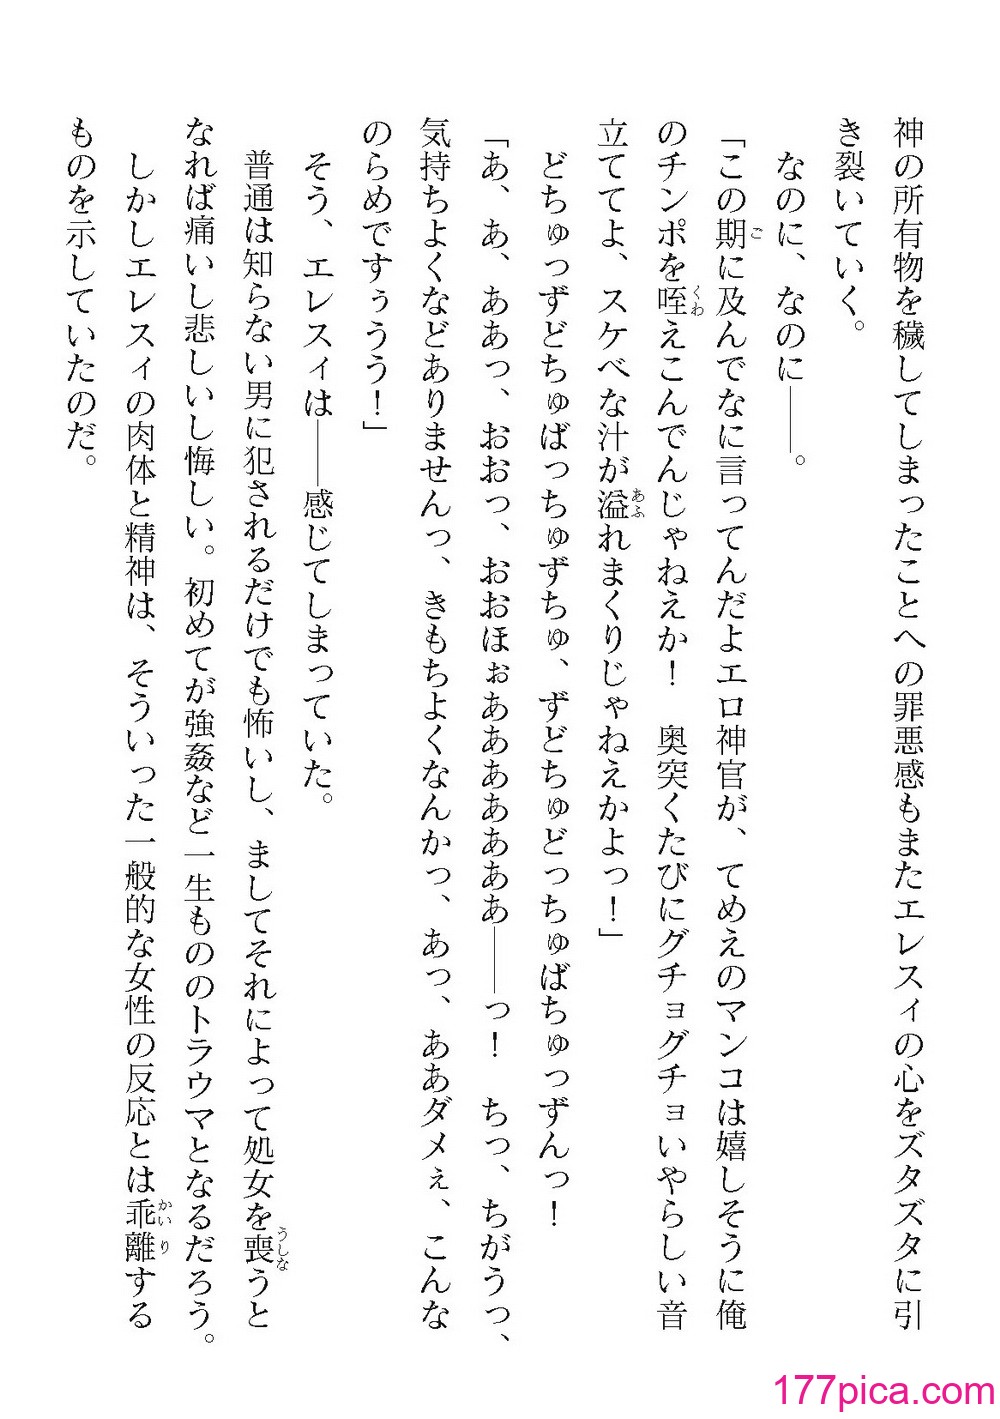 神の所有物を穢してしまったことへの罪悪感もまたエレスィの心をズタズタに引
き裂いていく。
なのに、なのに――。
「この期に及んでなに言ってんだよエロ神官が、てめえのマンコは嬉しそうに俺
のチンポを咥えこんでんじゃねえか！　奥突くたびにグチョグチョいやらしい音
立ててよ、スケベな汁が溢れまくりじゃねえかよっ！」
どちゅっずどちゅばっちゅずちゅ、ずどちゅどっちゅばちゅっずんっ！
「あ、あ、ああっ、おおっ、おおほぉあああああああ――っ！　ちっ、ちがうっ、
気持ちよくなどありませんっ、きもちよくなんかっ、あっ、ああダメぇ、こんな
のらめですぅうう！」
そう、エレスィは――感じてしまっていた。
普通は知らない男に犯されるだけでも怖いし、ましてそれによって処女を喪うと
なれば痛いし悲しいし悔しい。初めてが強姦など一生もののトラウマとなるだろう。
しかしエレスィの肉体と精神は、そういった一般的な女性の反応とは乖離する
ものを示していたのだ。
177pica.com